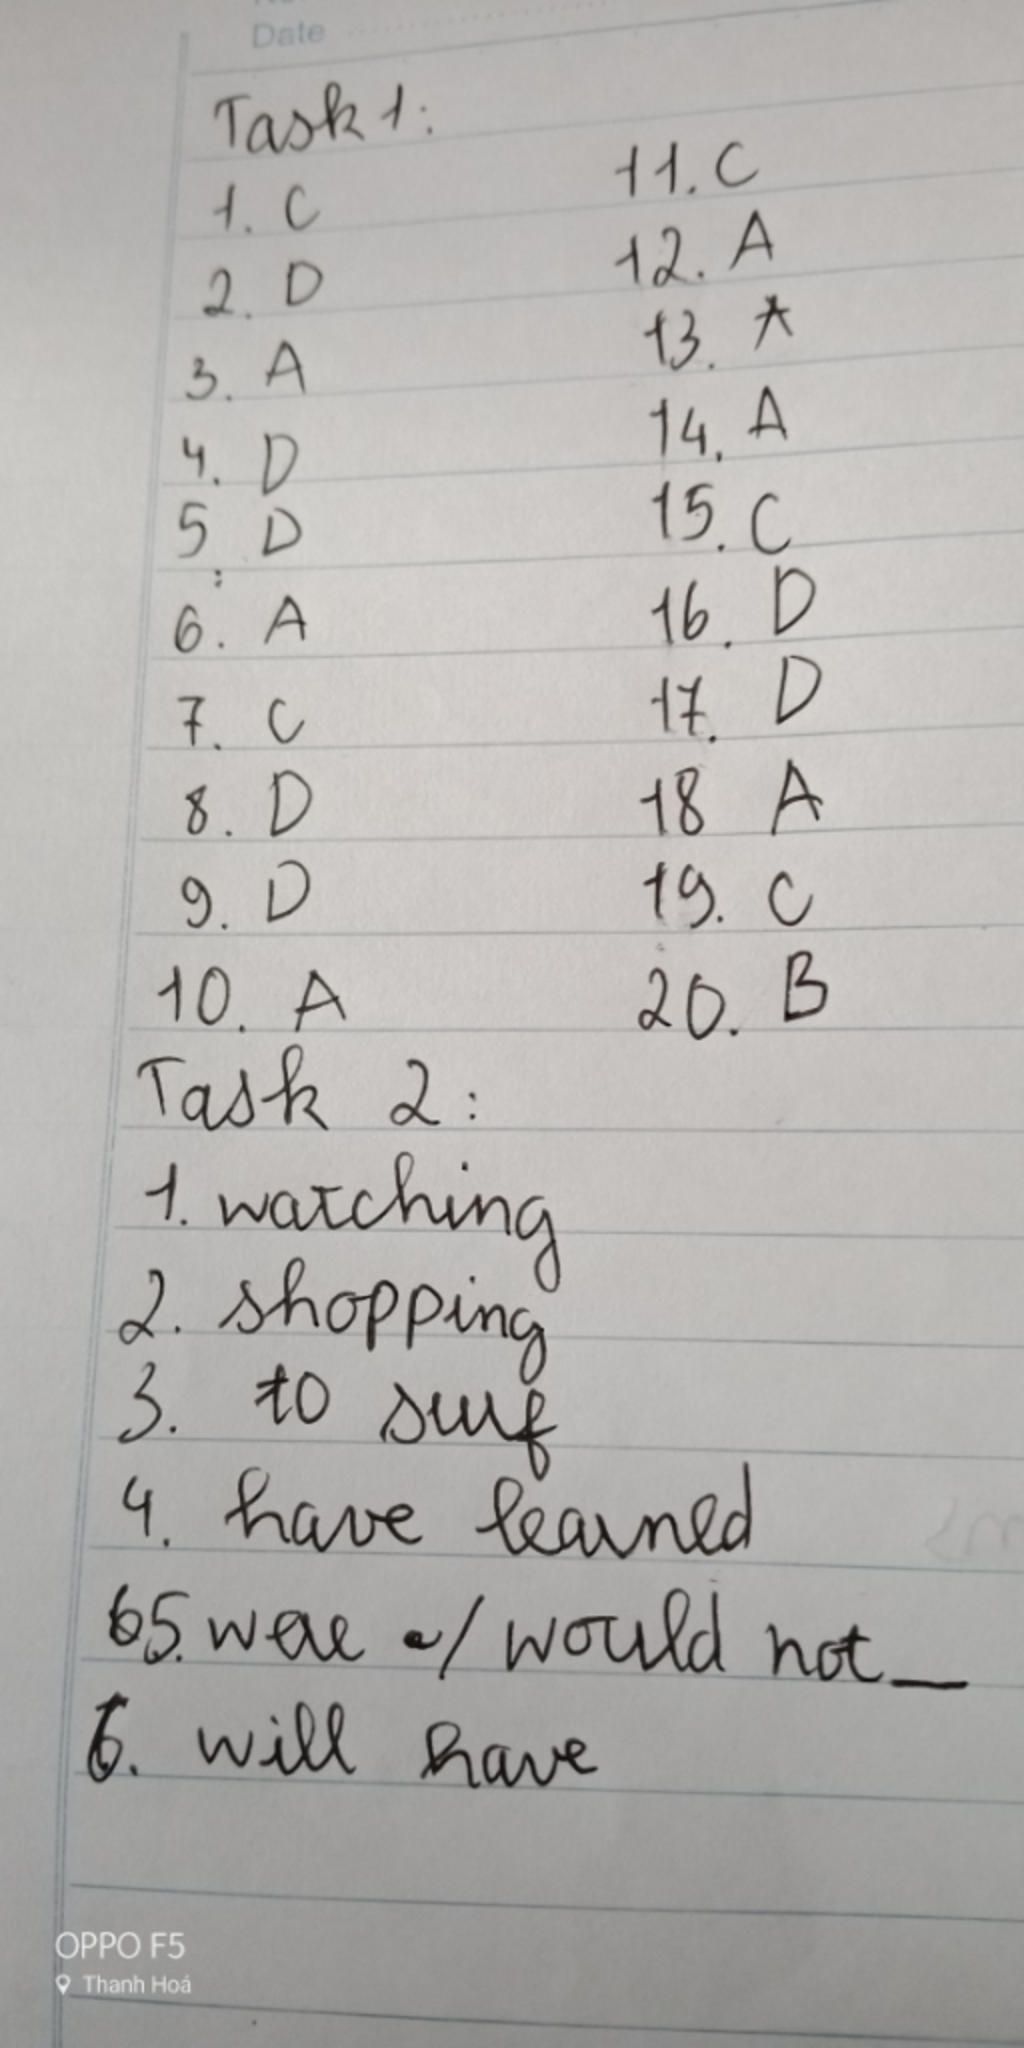 Date
Task 1:
1. C
2. D
3. A
4. D
5. D
6. A
7. C
8. D
9. D
10. A
11. C
12. A
13. A
14. A
15. C
16. D
17. D
18 A
19. C
20. B
Task 2:
1. watching
2. shopping
3. to surf
4. have learned
5. were / would not _
6. will have
OPPO F5
Thanh Hoá